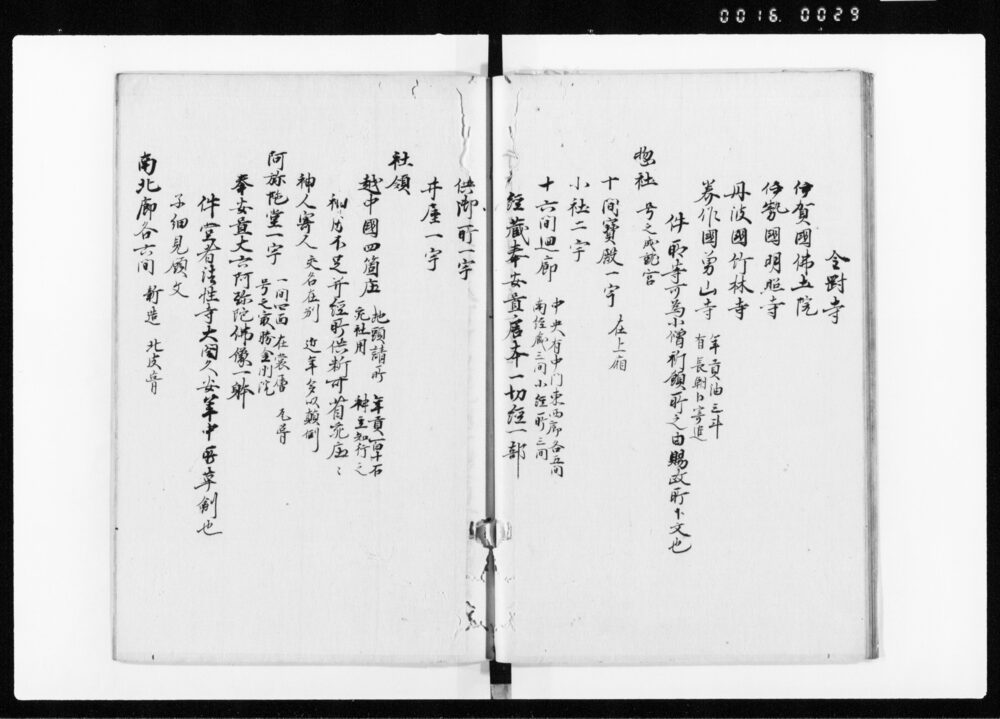 0016 0029
金剛寺
伊賀國佛土院
伊勢國明照寺
丹波國竹林寺
美作國勇山寺 年貢油三斗
有長
件所寺可為小僧祈願所之由賜政所下文也
惣社 号之
十間寶殿一宇 在上廂
小社二宇
十六間廻廊 中央有中门東西廊各五间
南經蔵三间小經所三间
經藏奉安置唐本一切經一部
供御所一宇
井屋一宇
社領
越中國四箇庄 地頭請所 年貢
充社用 神主知行之
不足并經所供料可
神人寄人 交名在別 近年多以顛倒
阿弥陀堂一宇 一间四面 在裳層
号之最勝金剛院
奉安置丈六阿弥陀佛像一躰
件堂者法性寺大閤久安年中再草創也
子細見願文
南北廊各六间 新造 北皮葺